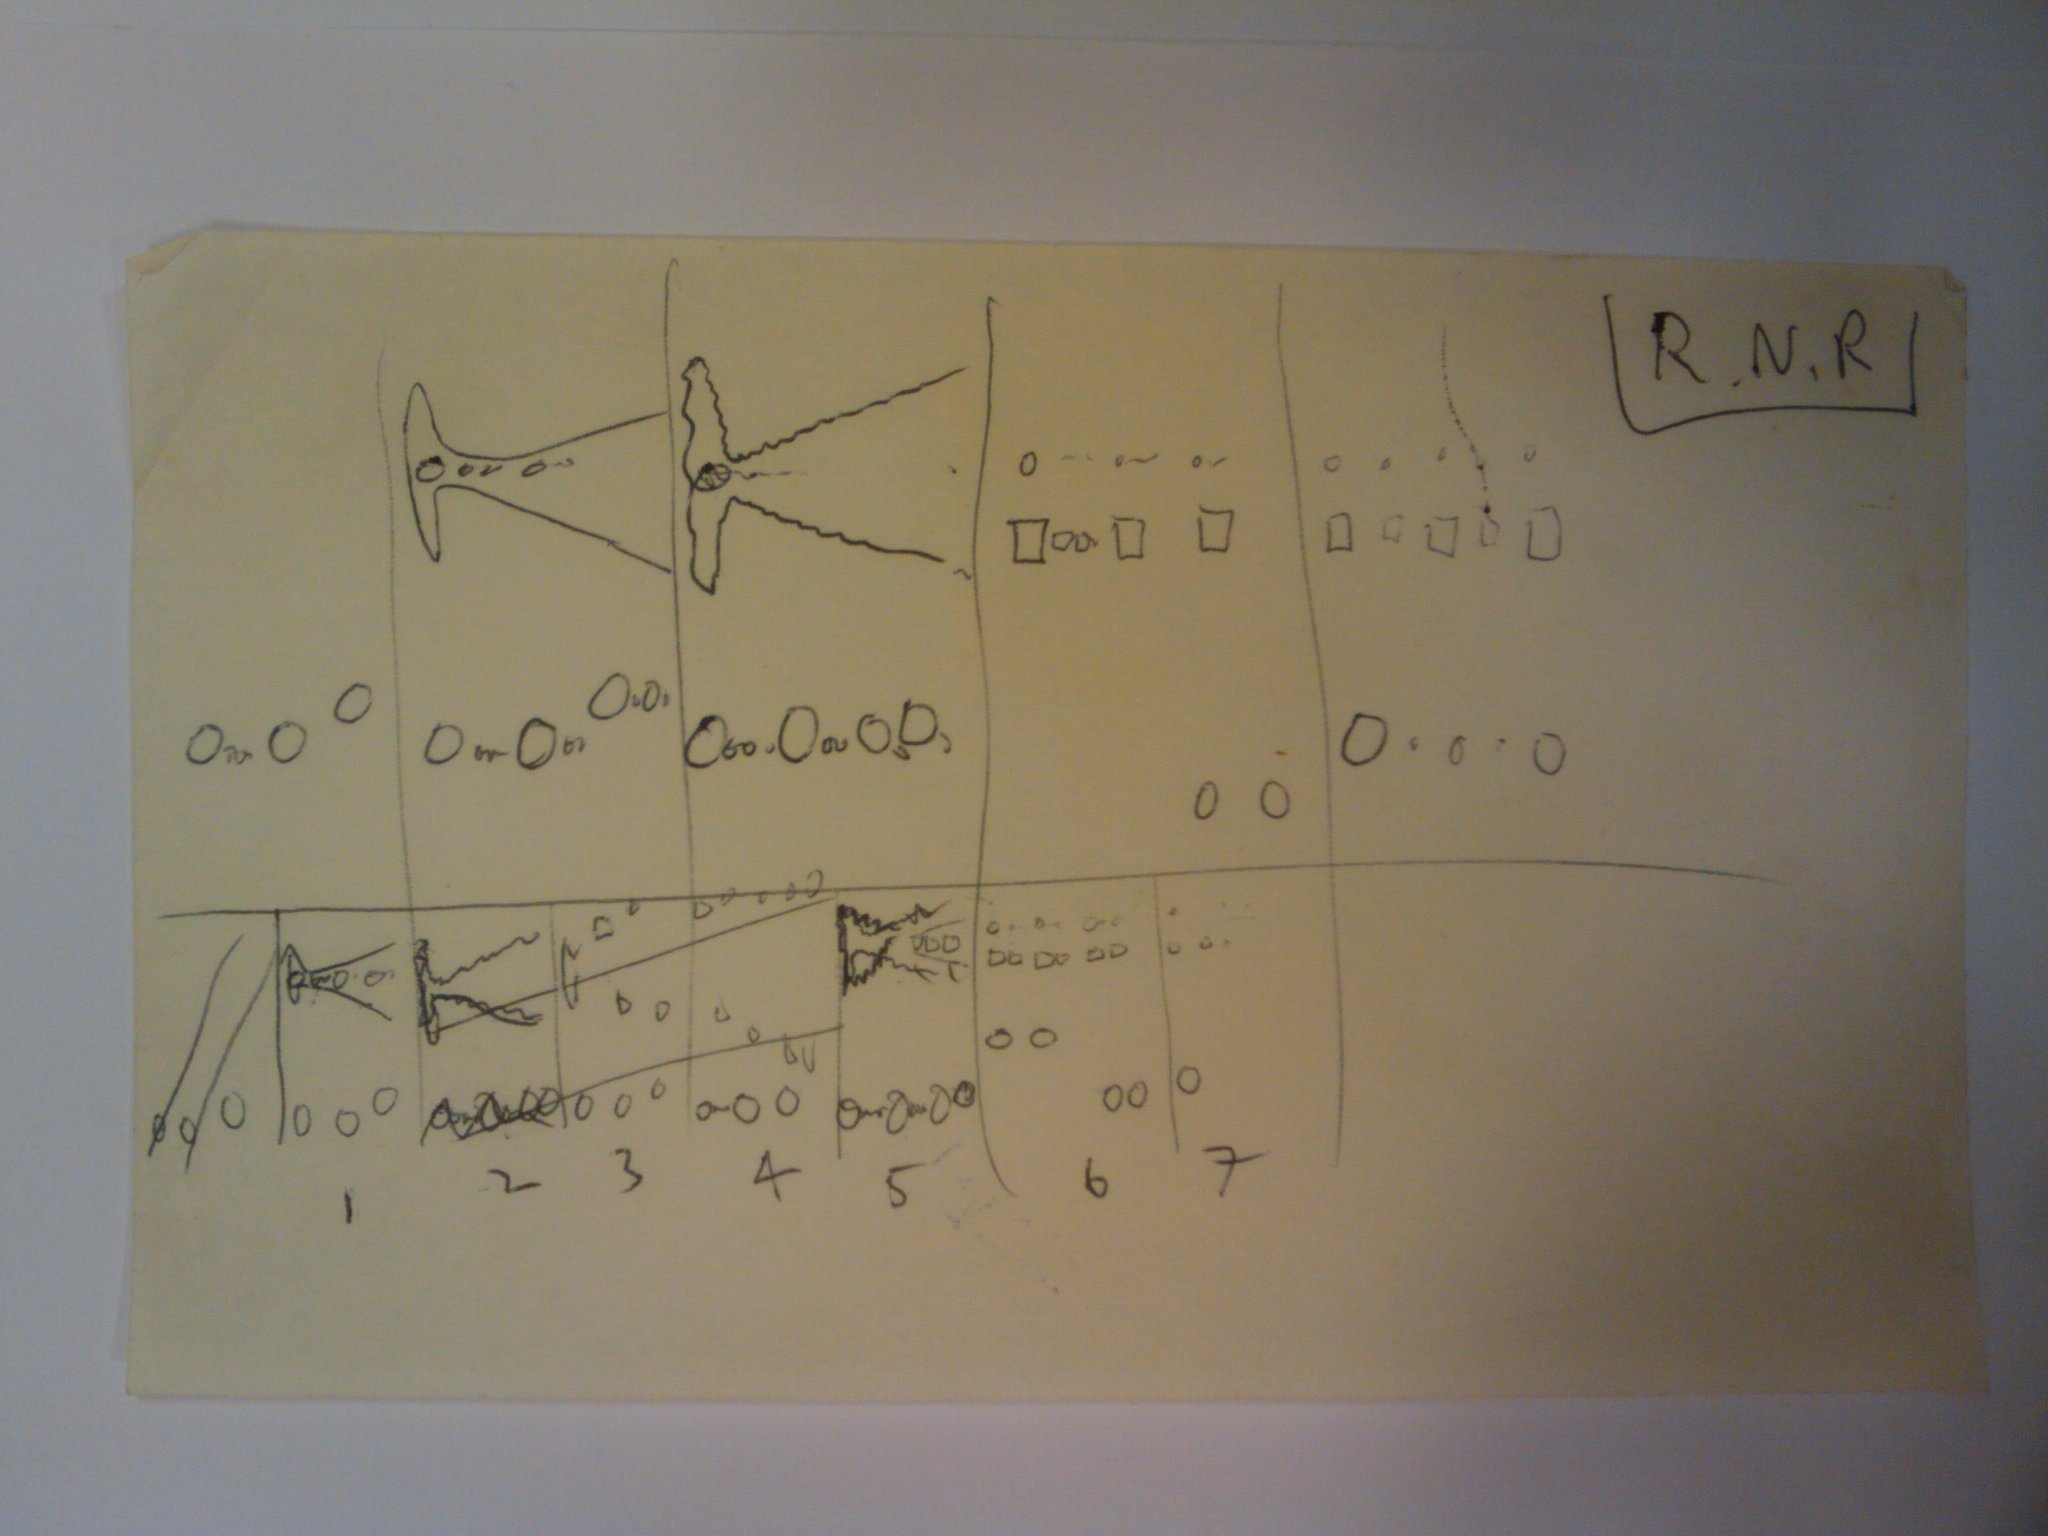 R.N.R
1 2 3 4 5 6 7